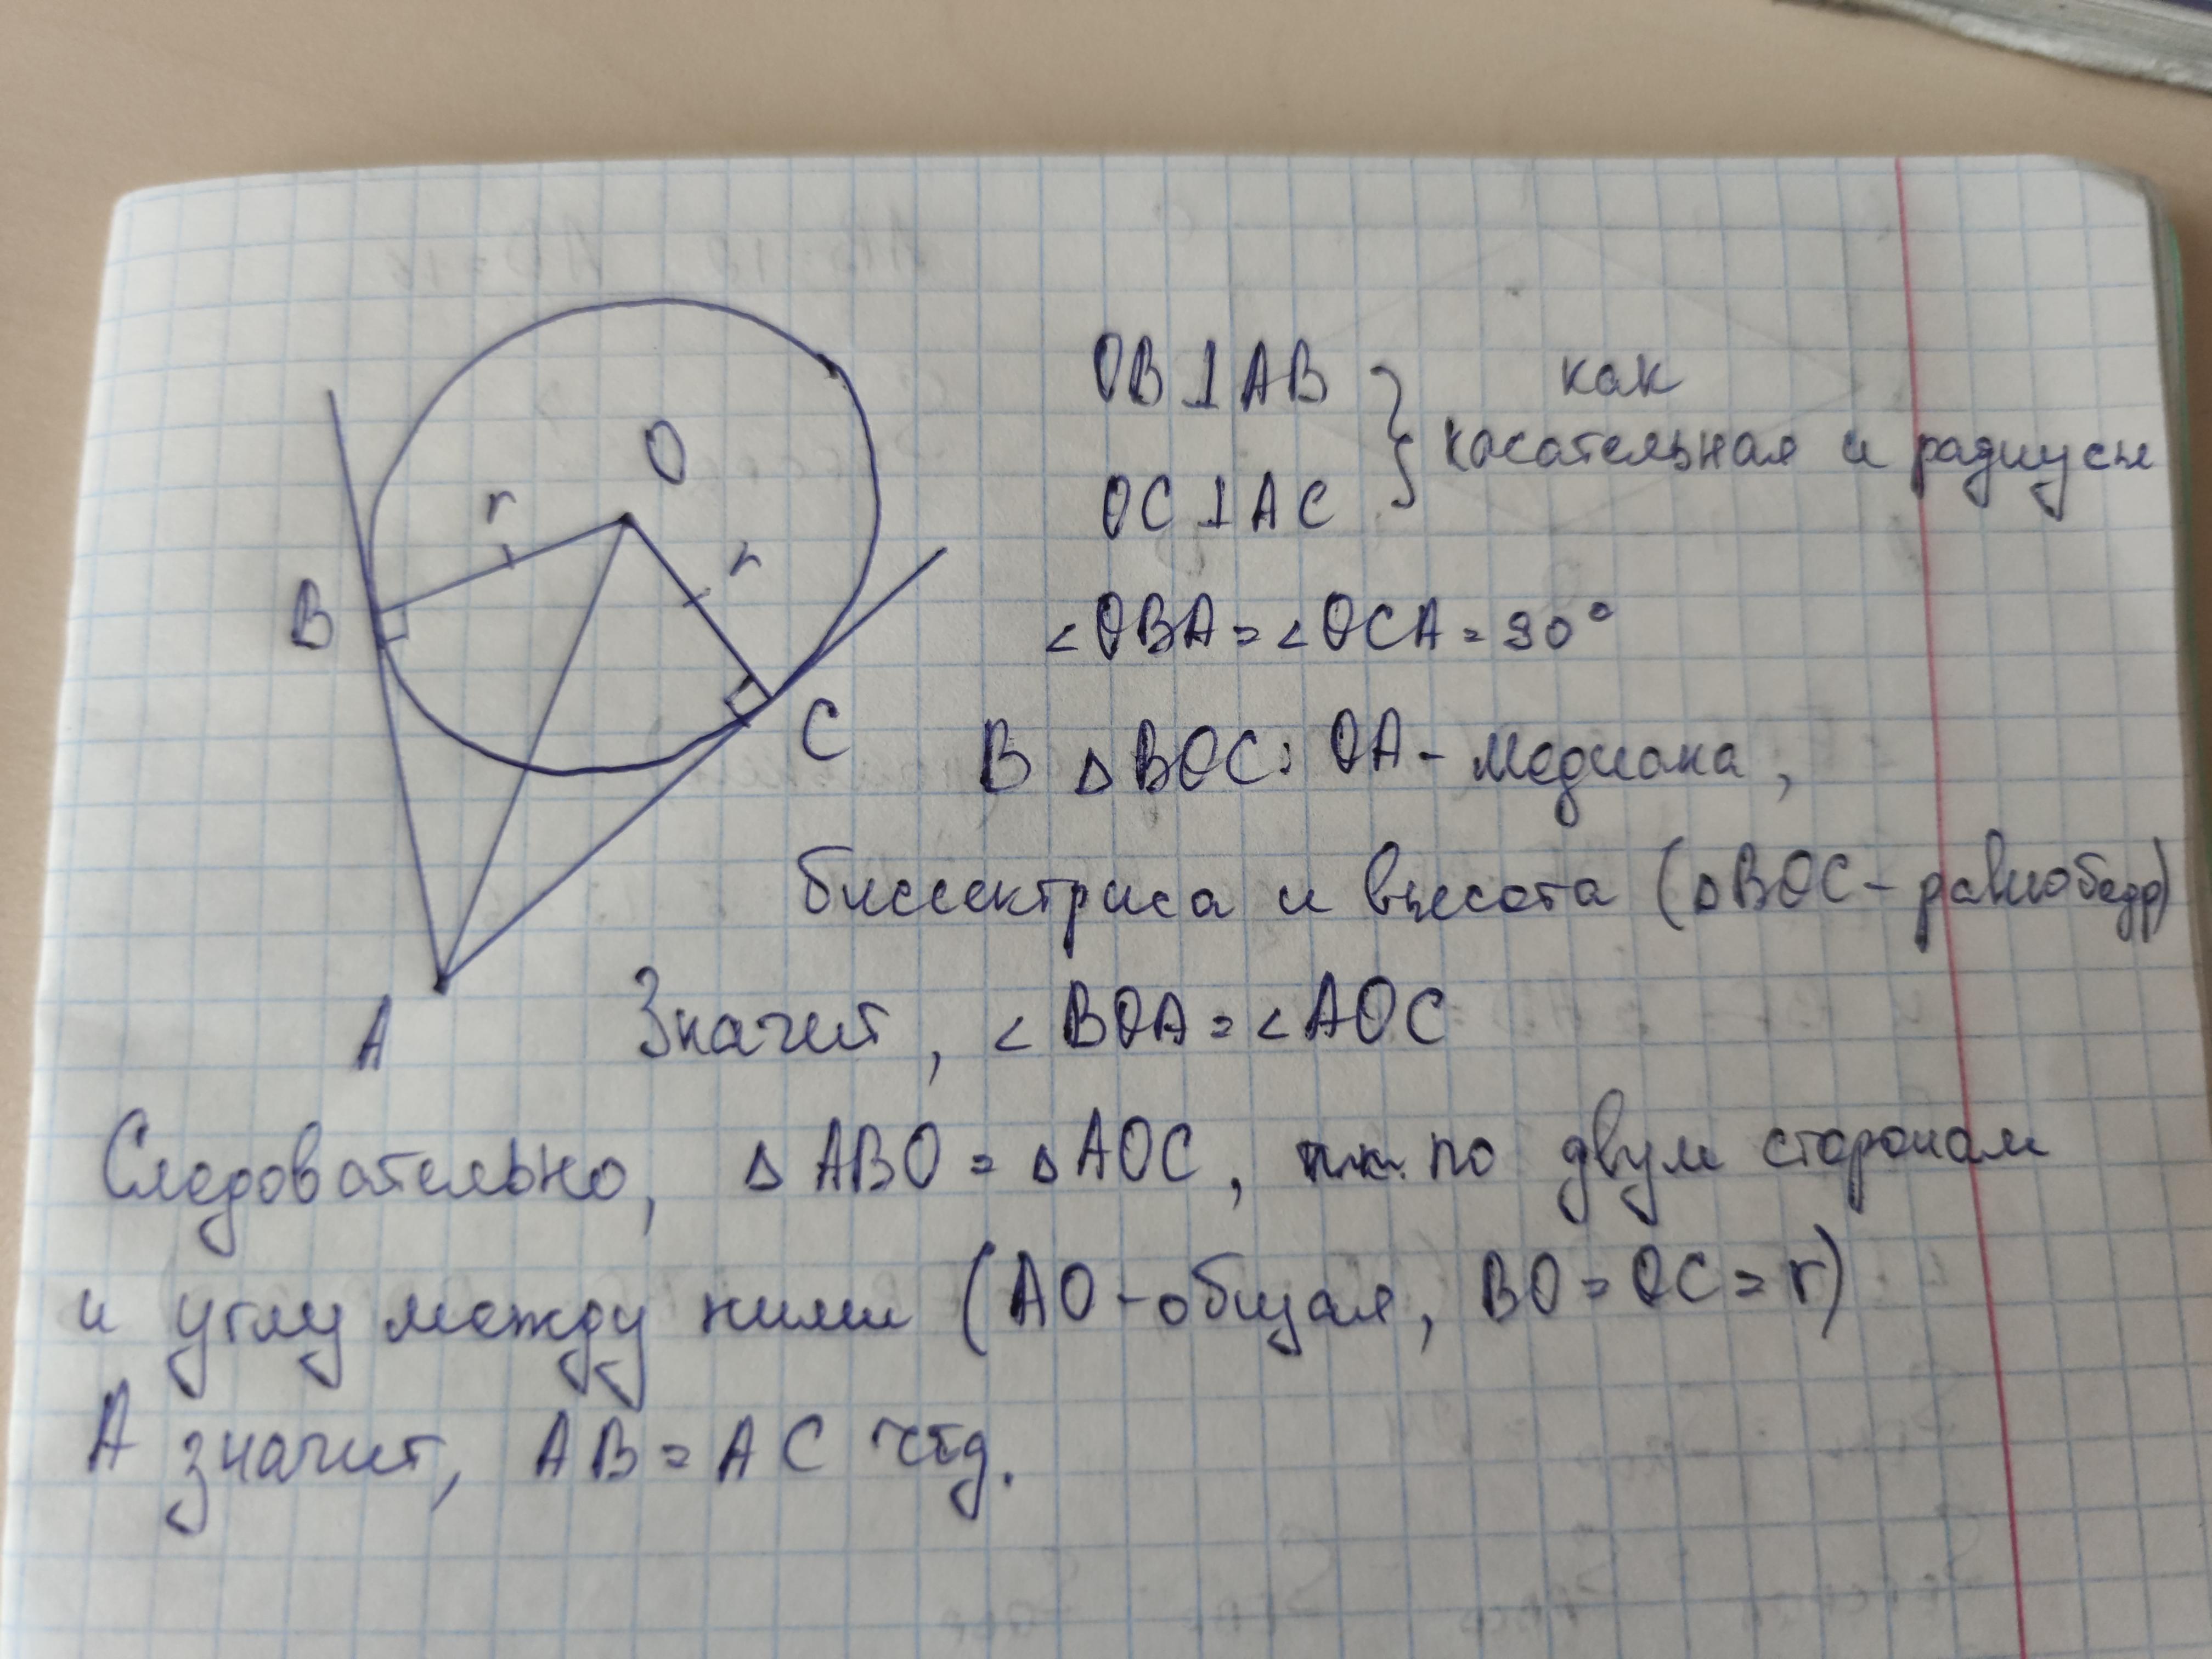 O
r
r
B
C
A
OB⊥AB } как
OC⊥AC } касательная и радиусы
∠OBA=∠OCA=90°
В △BOC: OA - медиана,
биссектриса и высота (△BOC - равнобедр)
Значит, ∠BOA=∠AOC
Следовательно, △ABO=△AOC, по двум сторонам
и углу между ними (AO - общая, BO=OC=r)
А значит, AB=AC чтд.